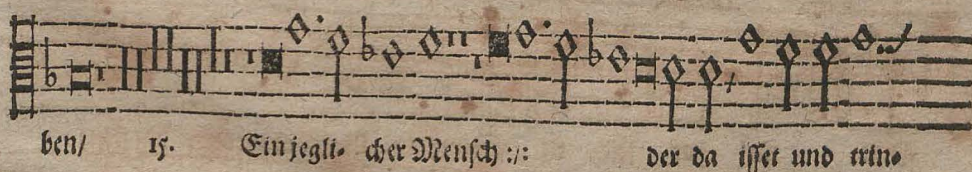 ben/ 15. Ein jegli- cher Mensch :/: der da isset und trin-